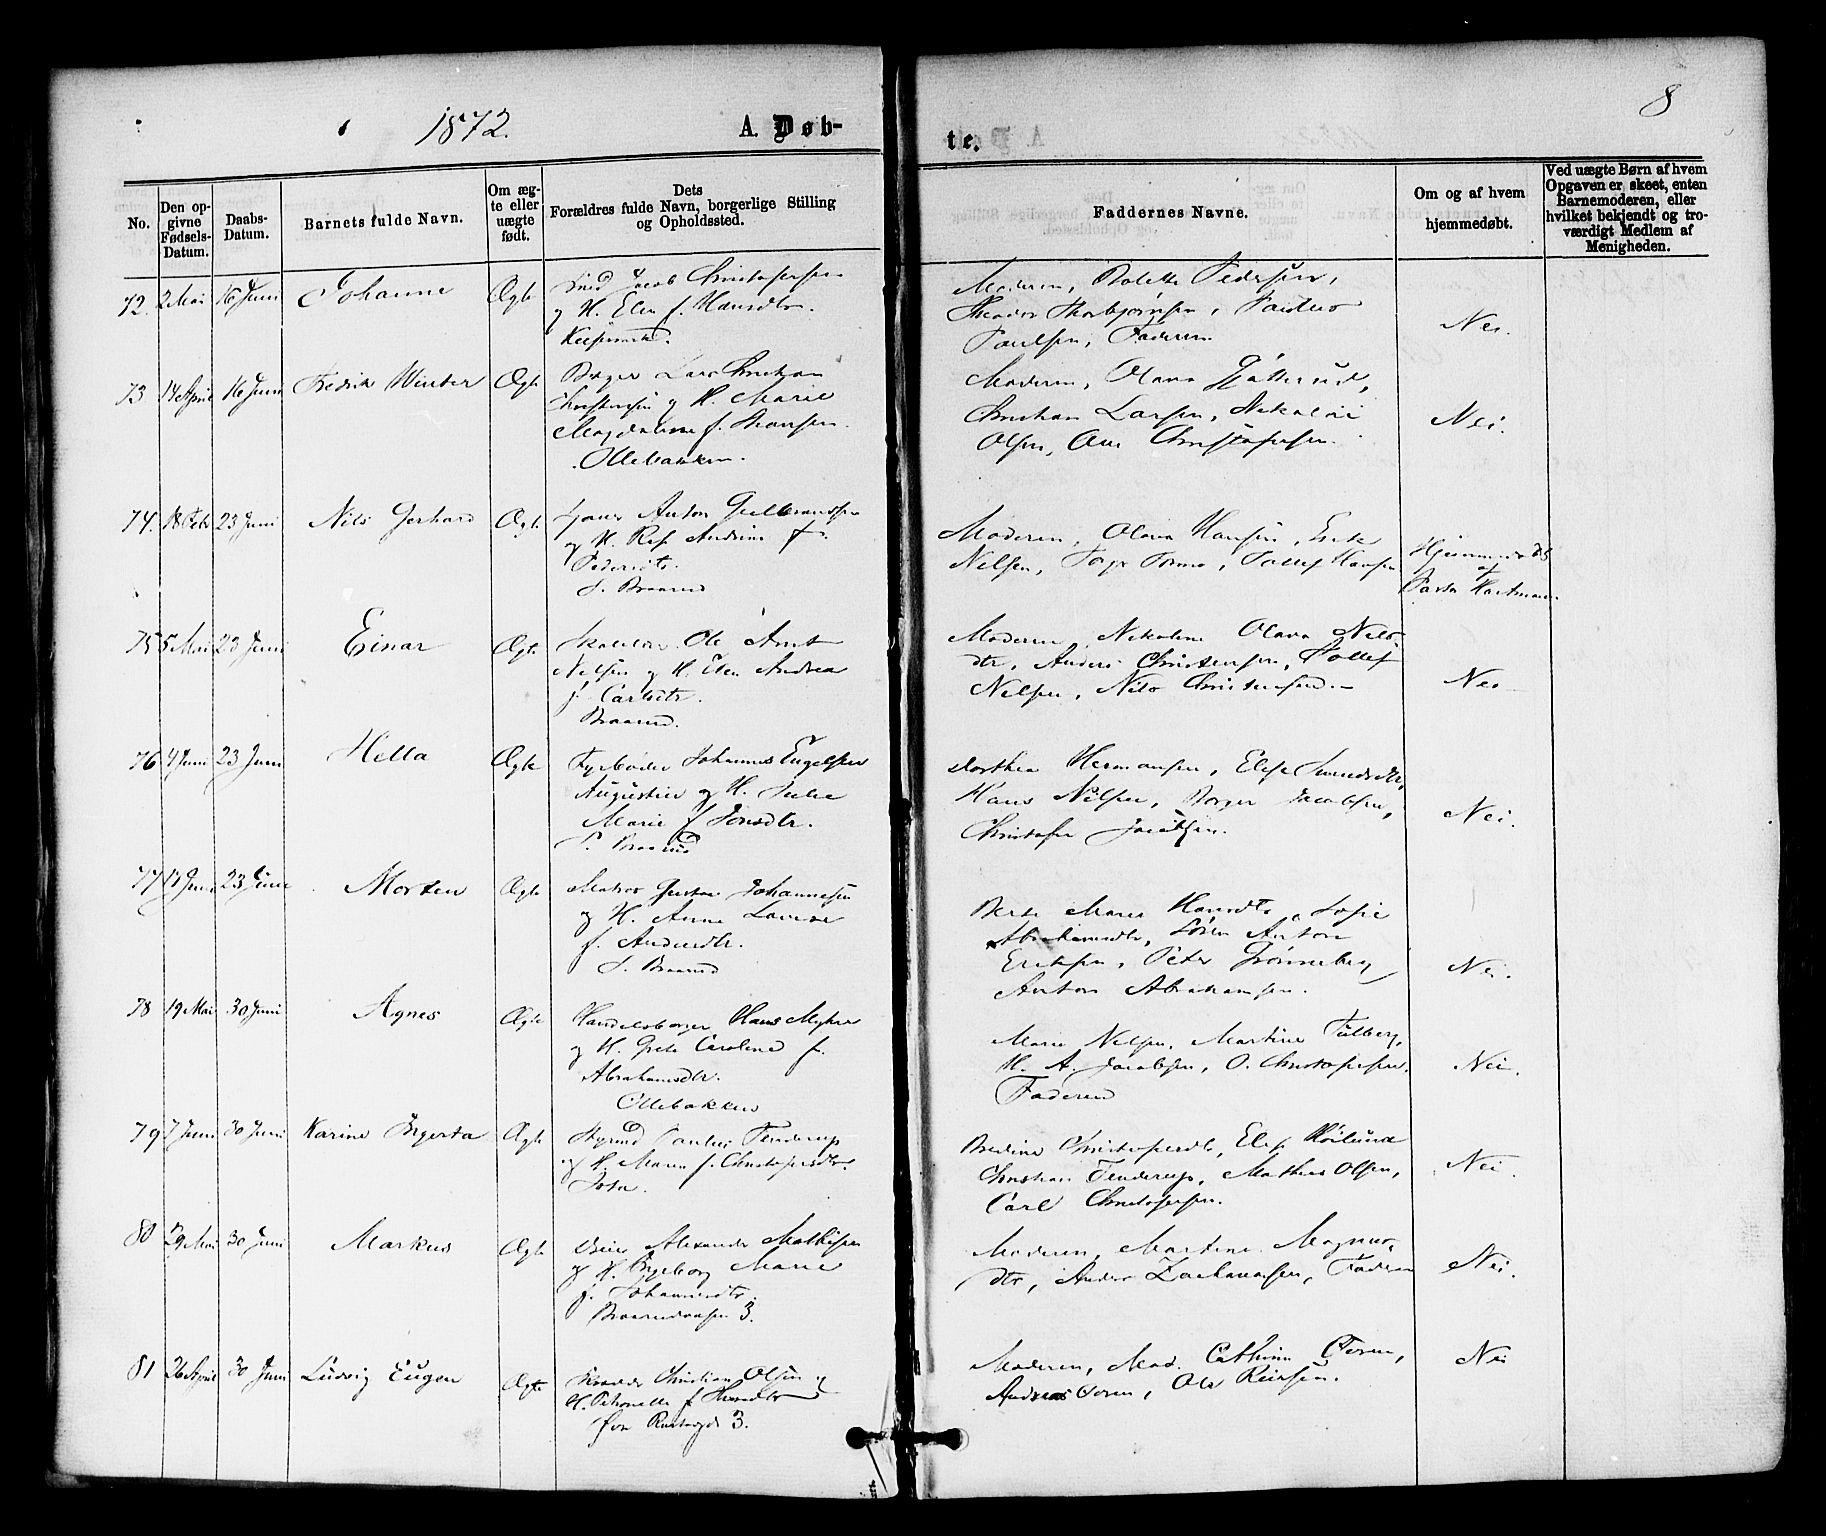 1872.
A. Døb-
te.
8
No.
Den op-
givne
Fødsels-
Datum.
Daabs-
Datum.
Barnets fulde Navn.
Om æg-
te eller
uægte
født.
Dets
Forældres fulde Navn, borgerlige Stilling
og Opholdssted.
Faddernes Navne.
Om og af hvem
hjemmedøbt.
Ved uægte Børn af hvem
Opgaven er skeet, enten
Barnemoderen, eller
hvilket bekjendt og tro-
værdigt Medlem af
Menigheden.
72. 2 Mai 16 Juni Johanne Ægte
Smed Jacob Christophersen
og H. Elen f. Hansdtr.
Moderen, Bolette Pedersen,
Theodor Thorbjørnsen,
Paulsen, Faderen
Nei.
73 14 April 16 Juni Fredrik Winter Ægte
Lars Christian
og H. Marie
Magdalene f. Hansen.
Ollebakken.
Moderen, Olava
Christian Larsen, Nikolai
Olsen, Ane Christophersen.
Nei.
74. 18 Feb 23 Juni Nils Gerhard Ægte
Anton Gulbrandsen
og H. Andrine f.
Pedersdtr.
S. Braarud
Moderen, Olava Hansen, Erik
Nelsen, Tollef Hansen
Hjemmedøbt
af
Pastor Hartmann.
75 5 Mai 23 Juni Einar Ægte
Ole Arnt
Nelsen og H. Elen Andrea
f. Carlsdtr.
Braarud.
Moderen, Nikoline Olava Nils-
dtr, Anders Christensen, Tollef
Nelsen, Nils Christensen.
Nei
76 4 Juni 23 Juni Hella Ægte
Fyrbøder Johannes Engelsen
Augustin og H. Julie
Marie f. Jonsdtr.
S. Braarud
Dorthea Hermansen, Elise
Hans Nilsen, Borger Jacobsen,
Christofer Jacobsen.
Nei.
77 Juni 23 Juni Morten Ægte
Matros Gustav Johannesen
og H. Anne Lovise
f. Andersdtr.
S. Braarud
Berte Marie Hansdtr, Sofie
Abrahamsdtr, Søren Anton
Eriksen, Peter Grønneberg
Anton Abrahamsen.
Nei.
78 19 Mai 30 Juni Agnes Ægte
Handelsborger Hans Myhre
og H. Grete Caroline f.
Abrahamsdtr.
Ollebakken
Marie Nelsen, Martine Tulberg,
H. A. Jacobsen, O. Christophersen.
Faderen
Nei.
79 7 Juni 30 Juni Karine Ingerta Ægte
Styrmd Paulus Tenderup
og H. Maren f. Christophersdtr.
Bredine Christophersdtr, Elise Høilund
Christian Tenderup, Mathias Olsen,
Carl Christophersen.
Nei.
80 29 Mai 30 Juni Markus Ægte
Alexander Mathisen
og H. Ingeborg Marie
f. Johannesdtr.
3.
Moderen, Martine Magnus-
dtr, Anders Zachariassen, Faderen
Nei.
81 26 April 30 Juni Ludvig Eugen Ægte
Christian Olsen og
H. Petronelle f.
3.
Moderen, Mad. Cathrine
Andreas Ole Reiersen.
Nei